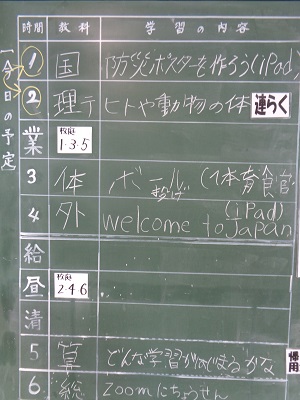 時間 教科 学習の内容
一今日の予定
1 国 防災ポスターを作ろう(iPad)
2 理テ ヒトや動物の体 連らく
業 校庭 1・3・5
3 体 ボール投げ (1体育館
4 外 Welcome to Japan (iPad)
給
昼 校庭 2・4・6
清
5 算 どんな学習がはじまるかな
帰用
6 総 Zoomにちょうせん